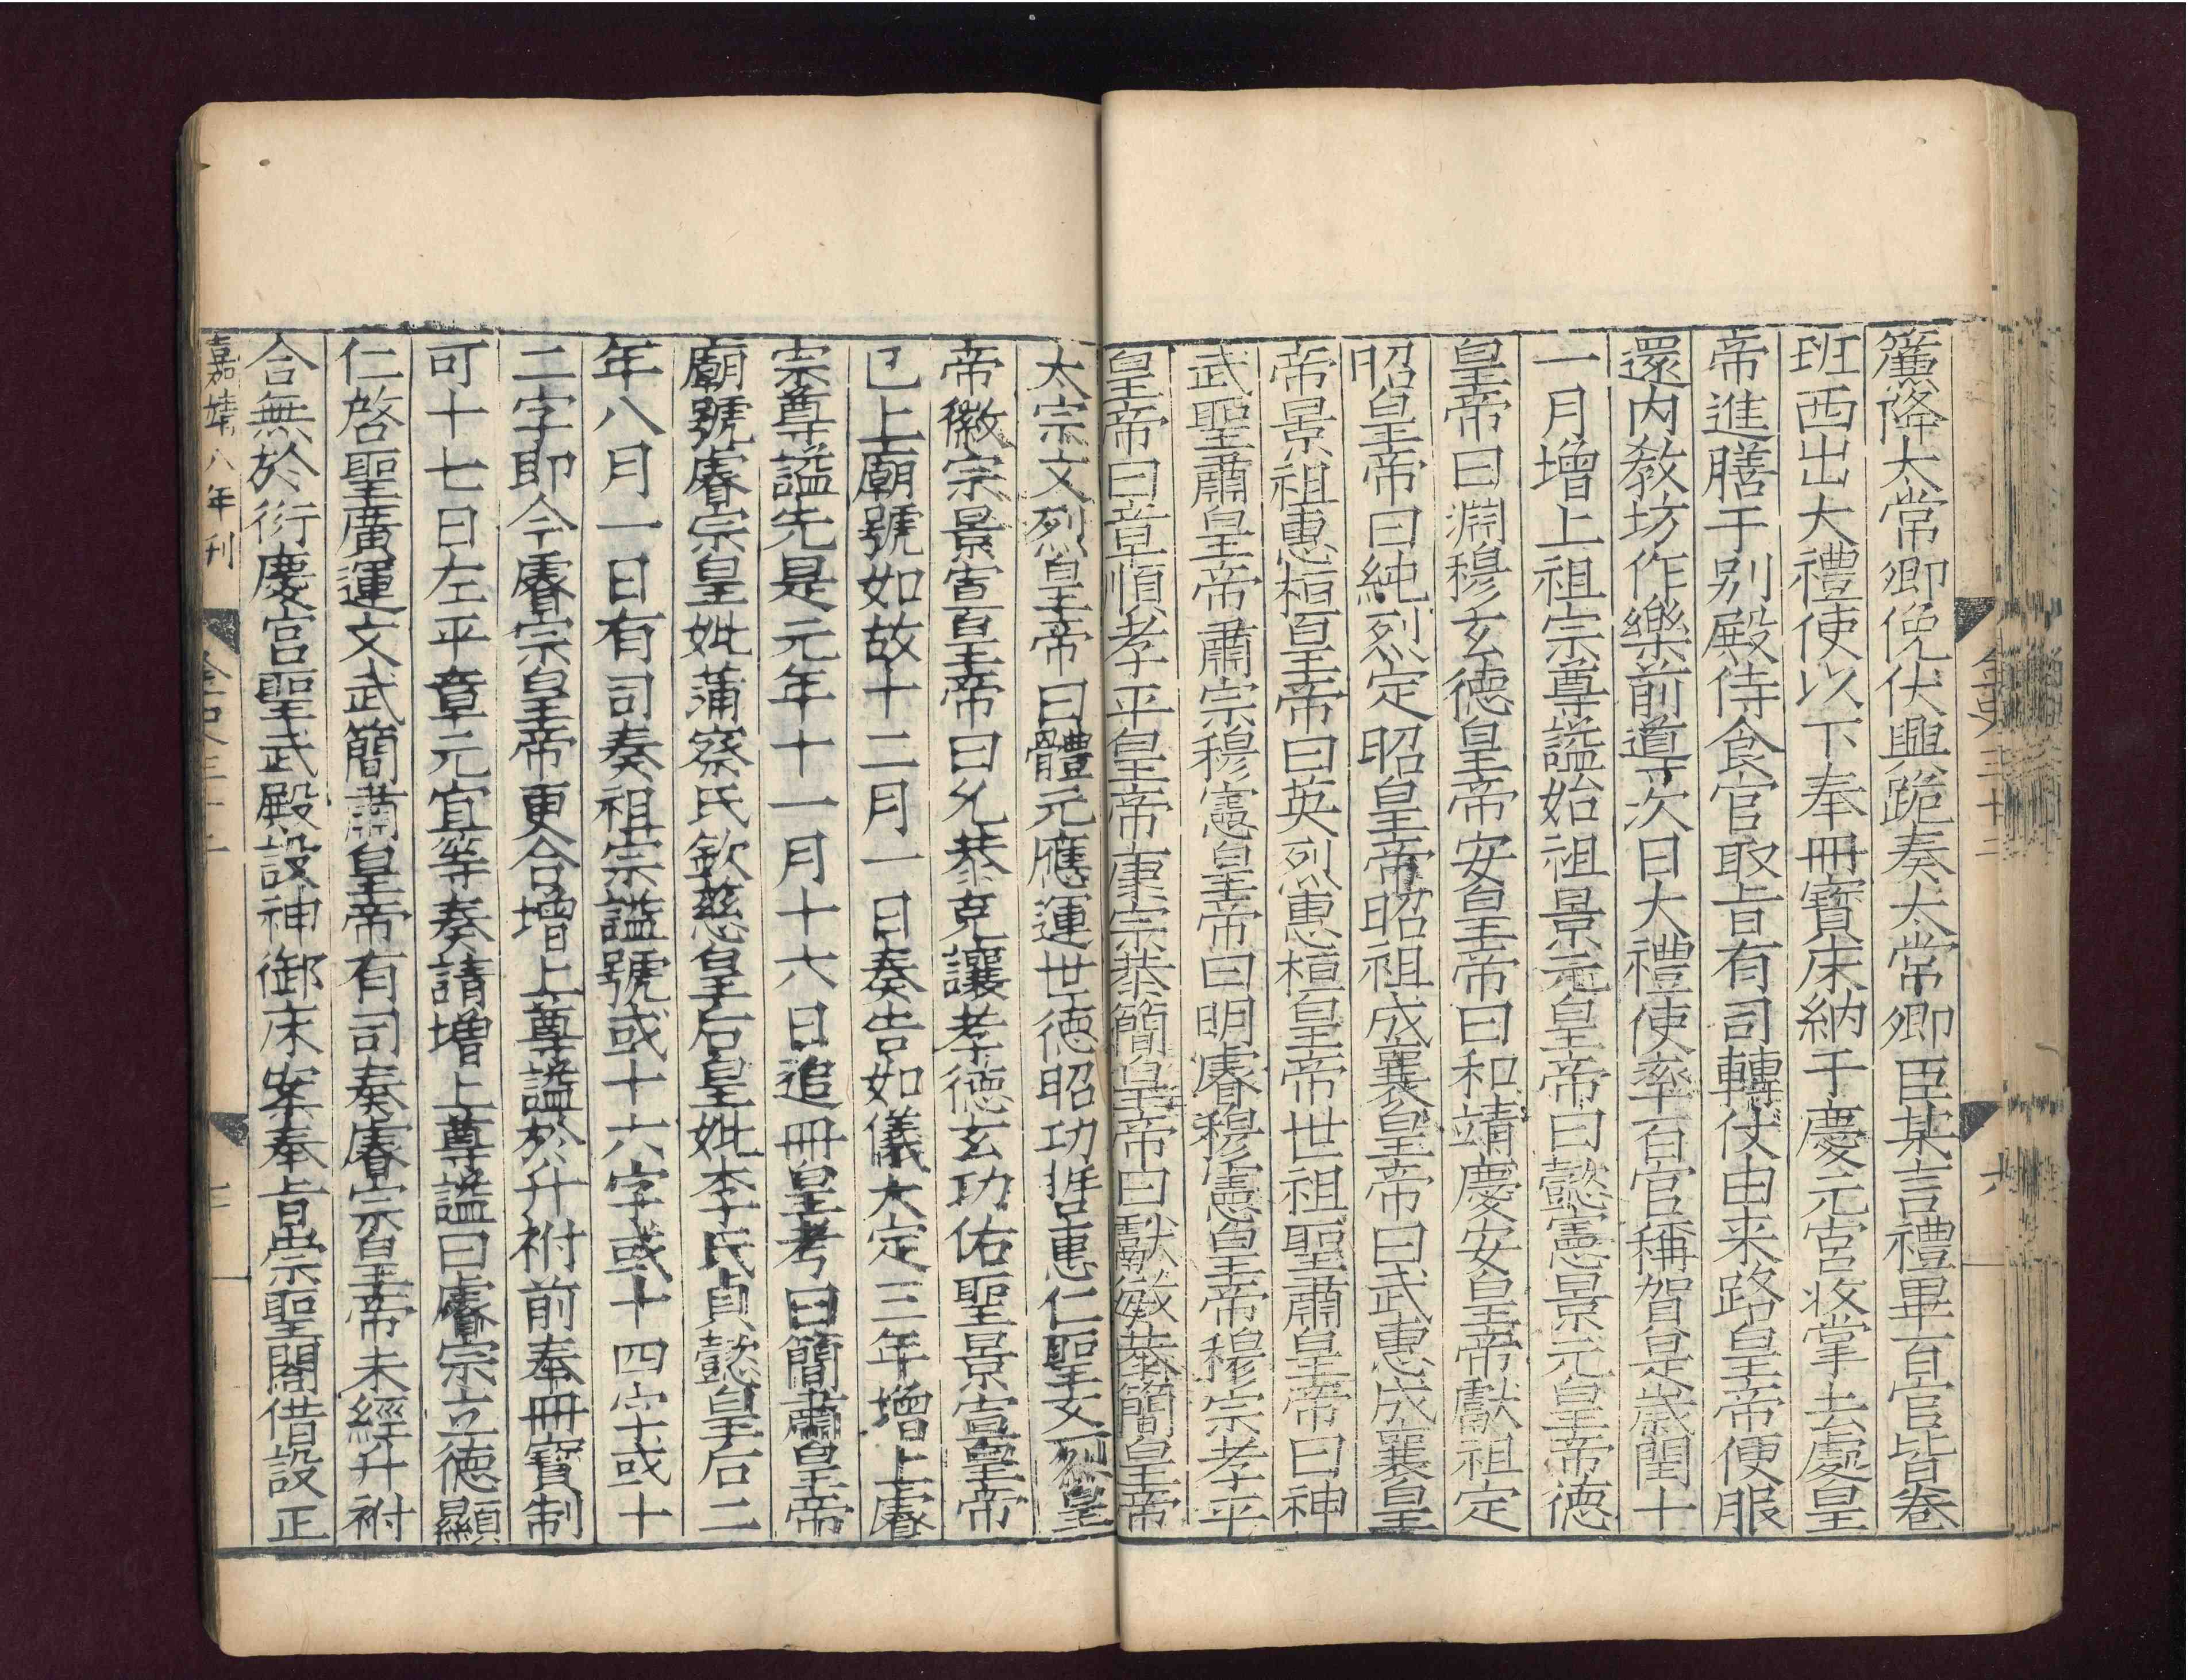 簾降太常卿俛伏興跪奏太常卿臣某言禮畢百官皆卷
班西出大禮使以下奉冊寶床納于慶元宮收掌去處皇
帝進膳于别殿侍食官取旨有司轉仗由来路皇帝便服
還内教坊作樂前導次日大禮使率百官稱賀是歳閏十
一月增上祖宗尊謚始祖景元皇帝曰懿憲景元皇帝德
皇帝曰淵穆玄德皇帝安皇帝曰和靖慶安皇帝獻祖定
昭皇帝曰純烈定昭皇帝昭祖成襄皇帝曰武惠成襄皇
帝景祖惠桓皇帝曰英烈惠桓皇帝世祖聖肅皇帝曰神
武聖肅皇帝肅宗穆憲皇帝曰明睿穆憲皇帝穆宗孝平
皇帝曰章順孝平皇帝康宗恭簡皇帝曰獻敏恭簡皇帝
太宗文烈皇帝曰體元應運世德昭功哲惠仁聖文烈皇
帝徽宗景宣皇帝曰允恭克讓孝德玄功佑聖景宣皇帝
已上廟號如故十二月一日奏告如儀大定三年增上睿
宗尊謚先是元年十一月十六日追冊皇考曰簡肅皇帝
廟號睿宗皇妣蒲察氏欽慈皇后皇妣李氏貞懿皇后二
年八月一日有司奏祖宗謚號或十六字或十四字或十
二字即今睿宗皇帝更合增上尊謚於升祔前奉冊寶制
可十七日左平章元宜等奏請增上尊謚曰睿宗立德顯
仁啓聖廣運文武簡肅皇帝有司奏睿宗皇帝未經升祔
合無於衍慶宮聖武殿設神御床案奉旨崇聖閣借設正
嘉靖八年刊